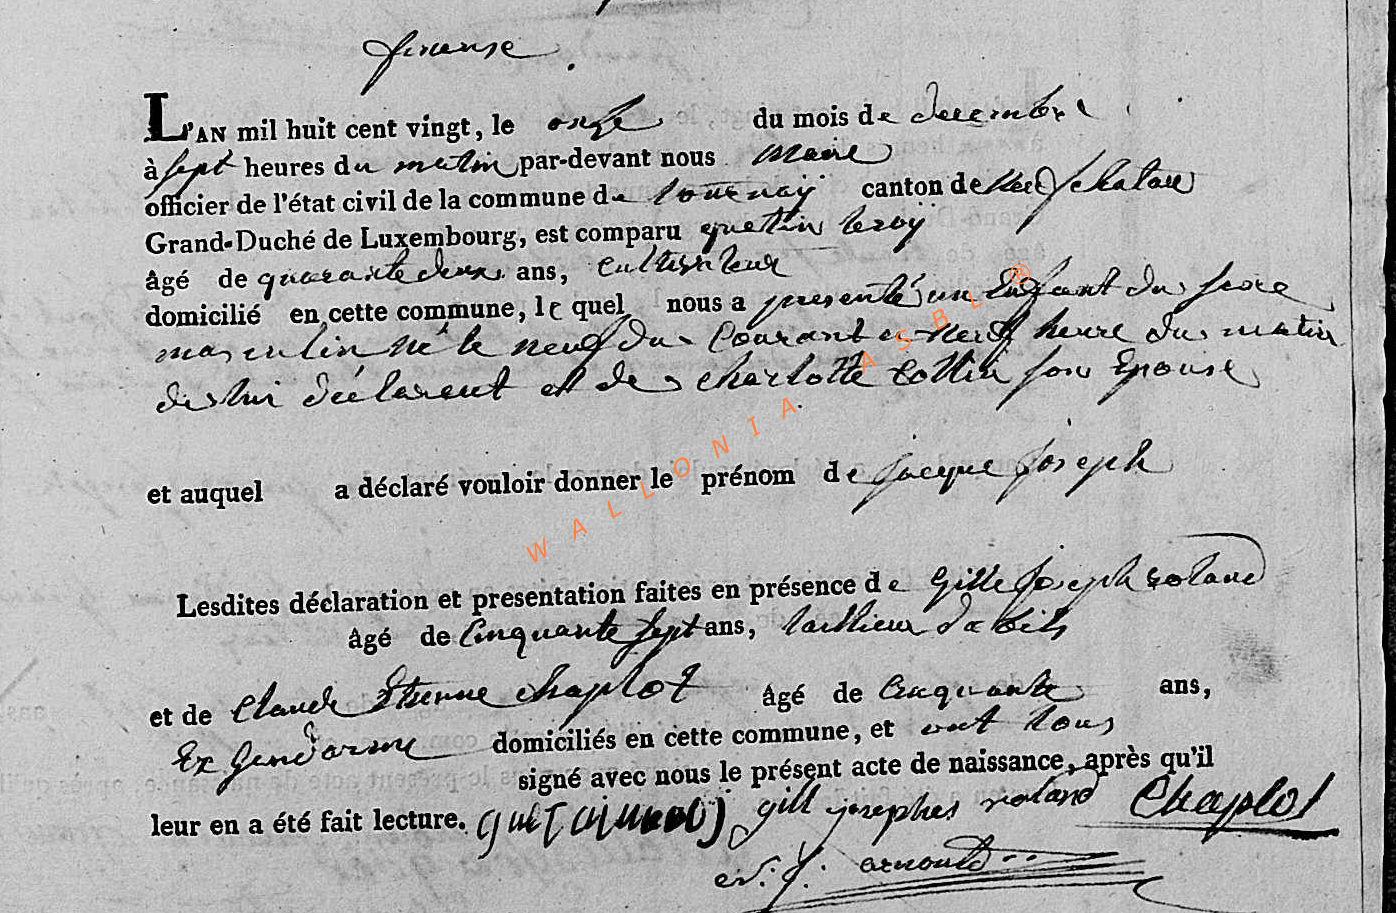 L'AN mil huit cent vingt, le onze du mois de decembre
à sept heures du matin par-devant nous Maire
officier de l'état civil de la commune de tournay canton de neufchatau
Grand-Duché de Luxembourg, est comparu quettin leroy
âgé de quarante deux ans, cultivateur
domicilié en cette commune, le quel nous a presenté un Enfant du sexe
masculin né le neuf du Courant a neuf heure du matin
de lui déclarent et de charlotte Collin son Epouse
et auquel a déclaré vouloir donner le prénom de jacque joseph
Lesdites déclaration et presentation faites en présence de Gille joseph roland
âgé de Cinquante sept ans, taillieur d'abits
et de Claude Etienne chaplot âgé de Cinquante ans,
Ex Gendarme domiciliés en cette commune, et ont tous
signé avec nous le présent acte de naissance, après qu'il
leur en a été fait lecture. gill josephes roland Chaplot
arnould
WALLONIA ASBL ®